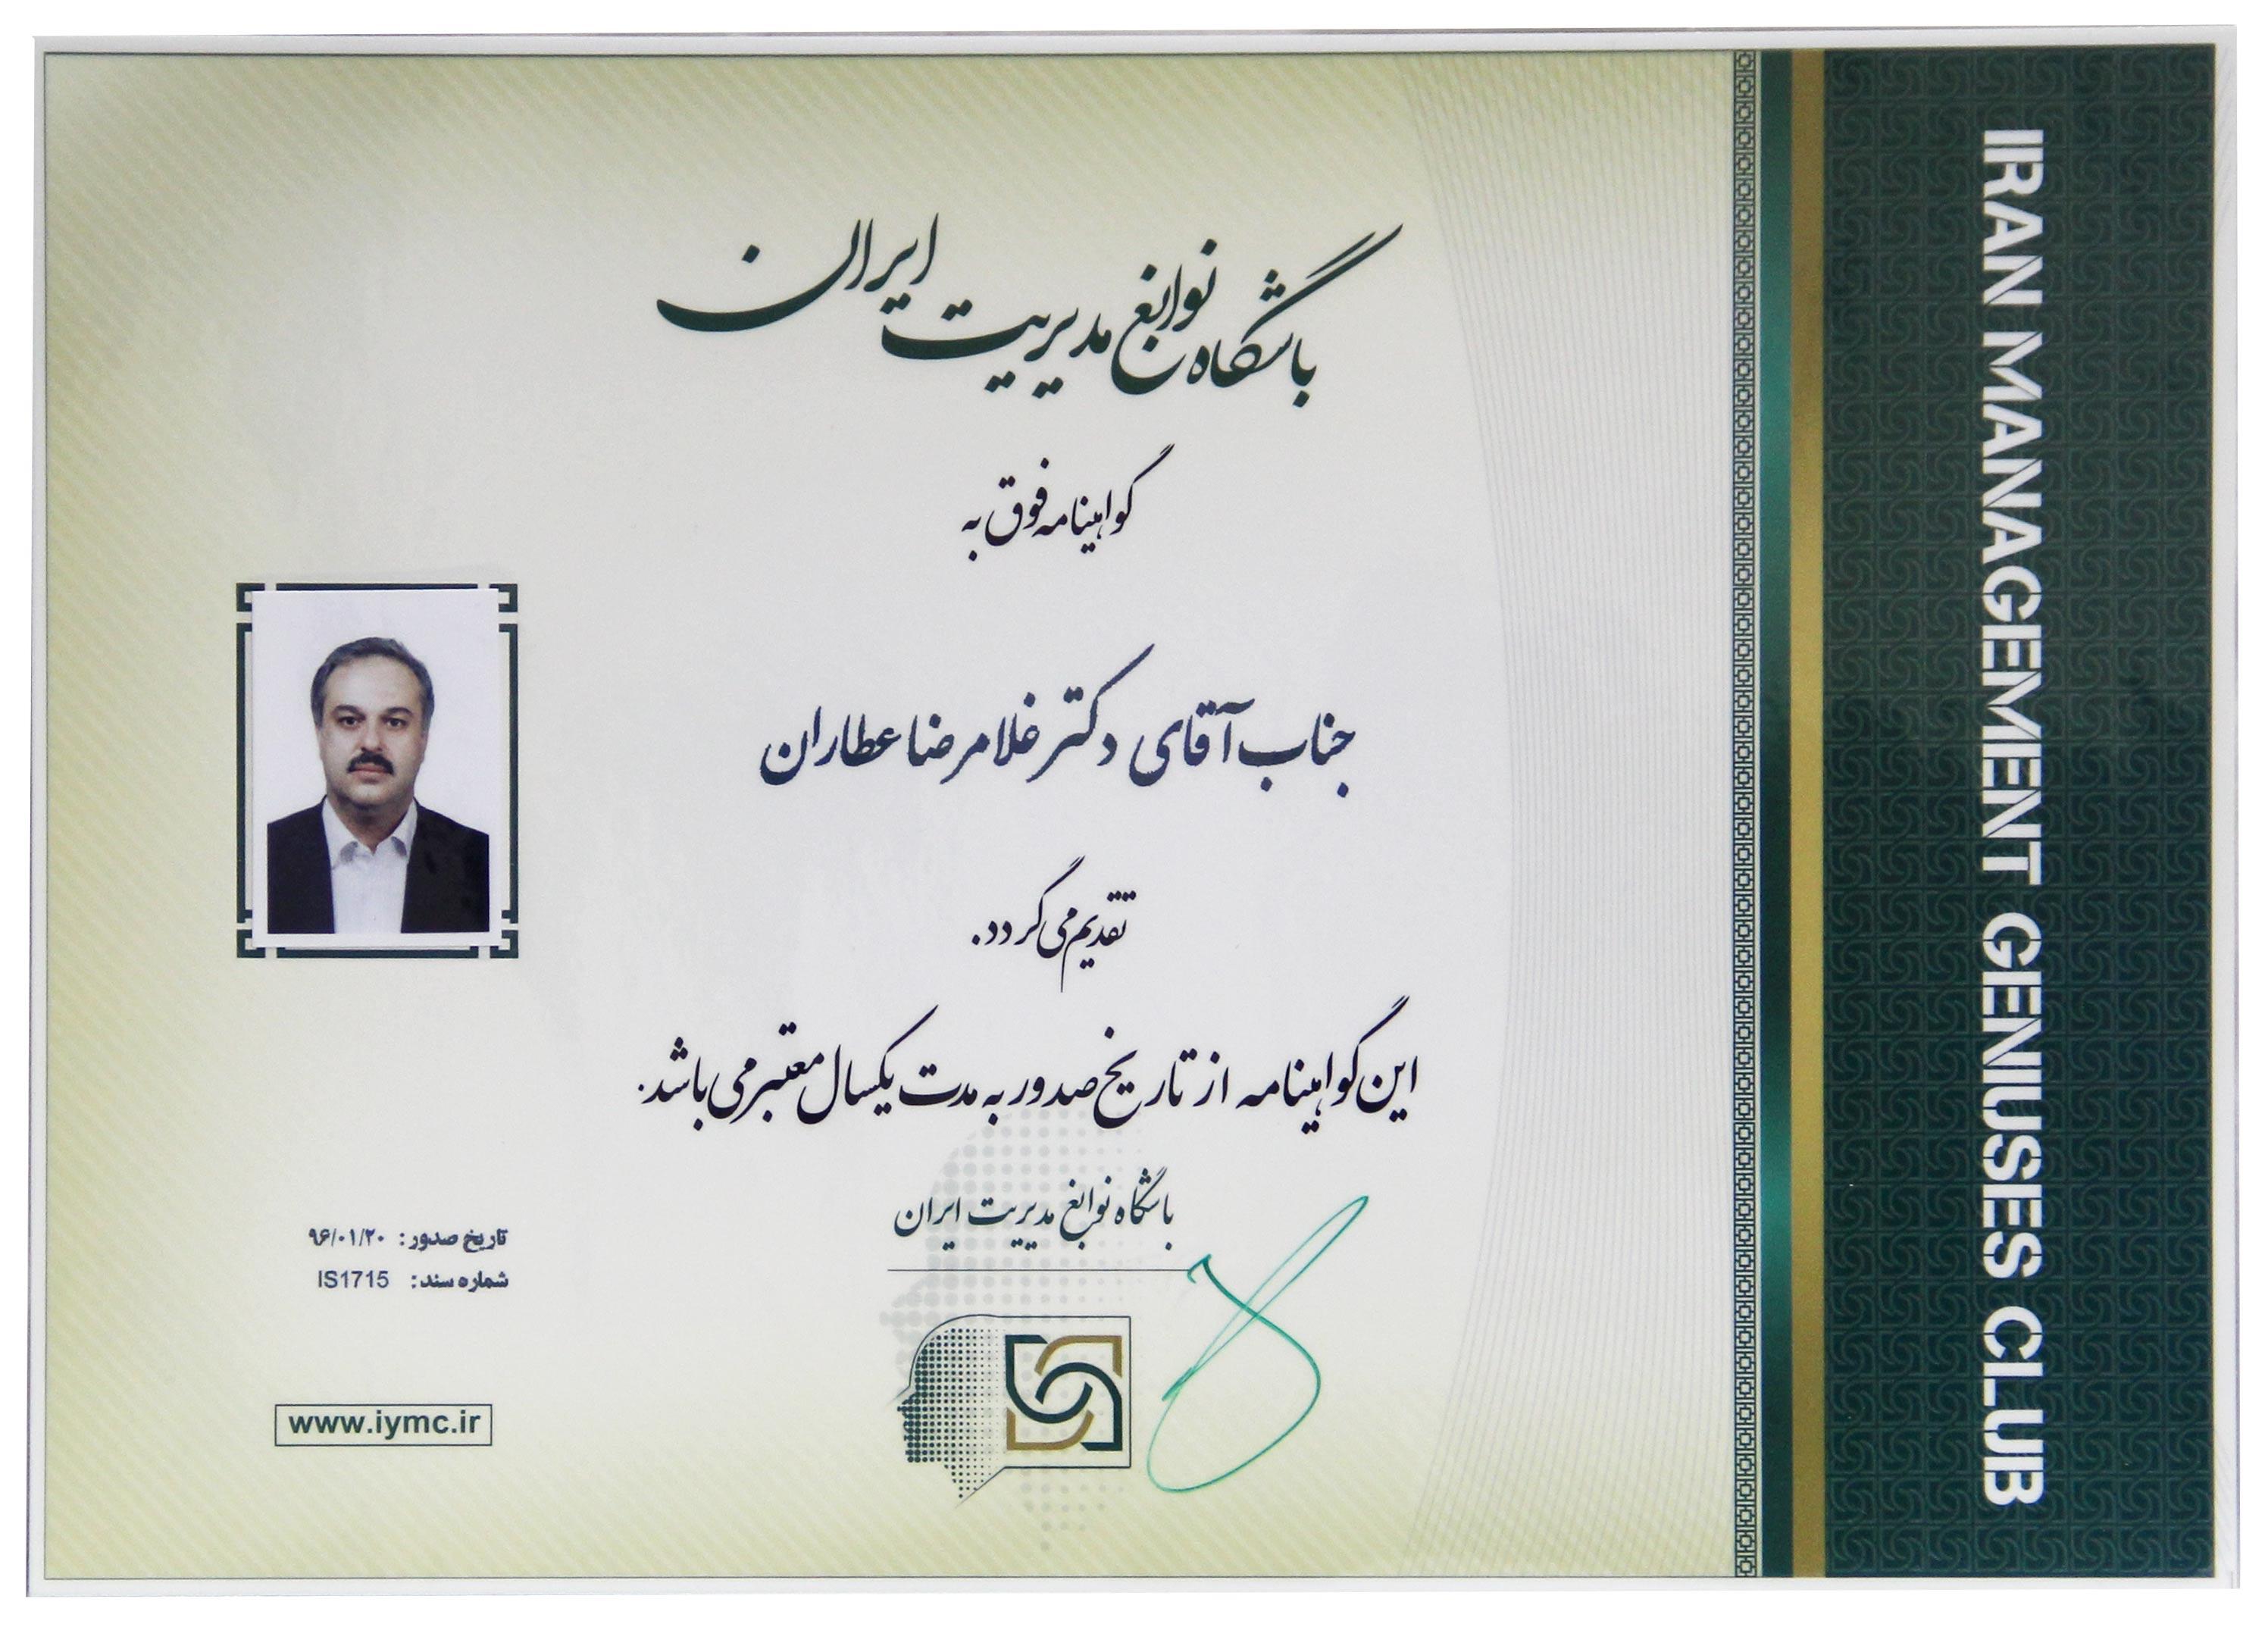 باشگاه نوابغ مدیریت ایران
گواهینامه فوق به
جناب آقای دکتر غلامرضا عطاران
تقدیم می گردد.
این گواهینامه از تاریخ صدور به مدت یکسال معتبر می باشد.
باشگاه نوابغ مدیریت ایران
تاریخ صدور: ۹۶/۰۱/۲۰
شماره سند: IS1715
www.iymc.ir
IRAN MANAGEMENT GENIUSES CLUB